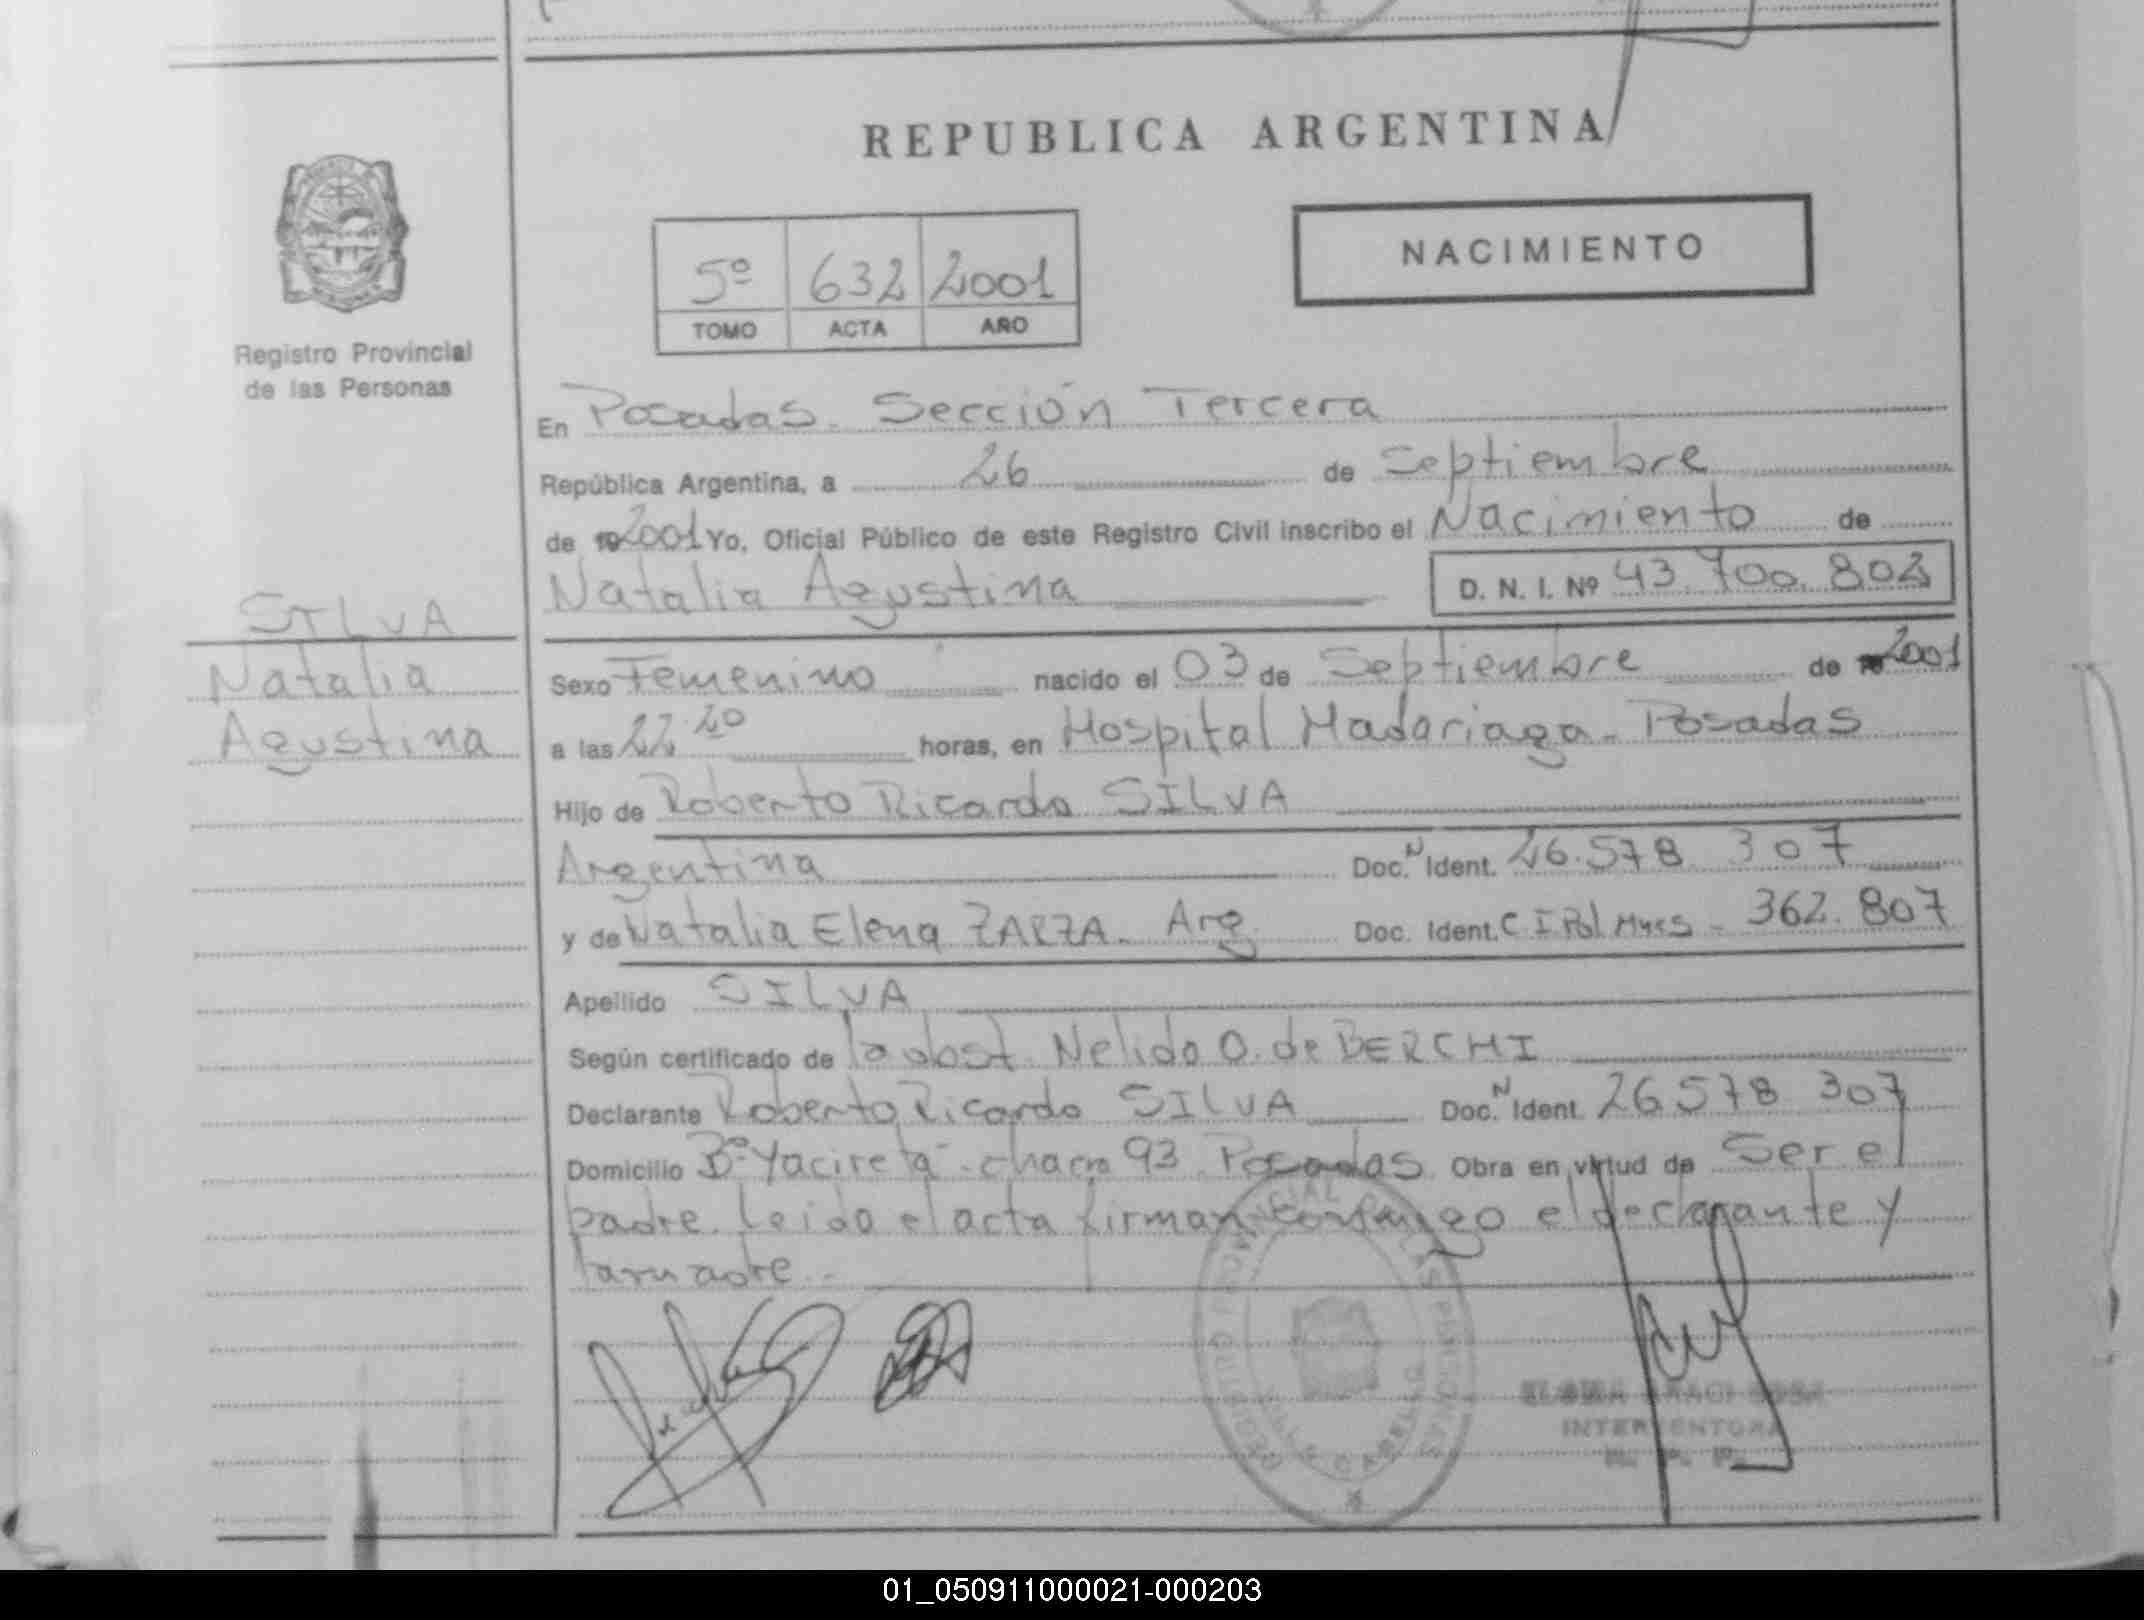 REPUBLICA ARGENTINA
NACIMIENTO
5º 632 2001
TOMO ACTA AÑO
Registro Provincial
de las Personas
En Posadas. Sección Tercera
República Argentina, a 26 de Septiembre
de 2001 Yo, Oficial Público de este Registro Civil inscribo el Nacimiento de
Natalia Agustina D. N. I. Nº 43.700.802
SILVA
Natalia
Agustina
Sexo Femenino nacido el 03 de Septiembre de 2001
a las 22.20 horas, en Hospital Madariaga - Posadas
Hijo de Roberto Ricardo SILVA
Argentina Doc. N Ident. 26.578 307
y de Natalia Elena ZARZA. Arg. Doc. Ident. C I Pol Mnes - 362.807
Apellido SILVA
Según certificado de la obst. Nelida O. de BERCHI
Declarante Roberto Ricardo SILVA Doc. N Ident. 26578 307
Domicilio Bº Yacireta - chacra 93 Posadas Obra en virtud de Ser el
padre. Leido el acta firman conmigo el declarante y
la madre.-
INTERVENTORA
R. P. P.
01_050911000021-000203